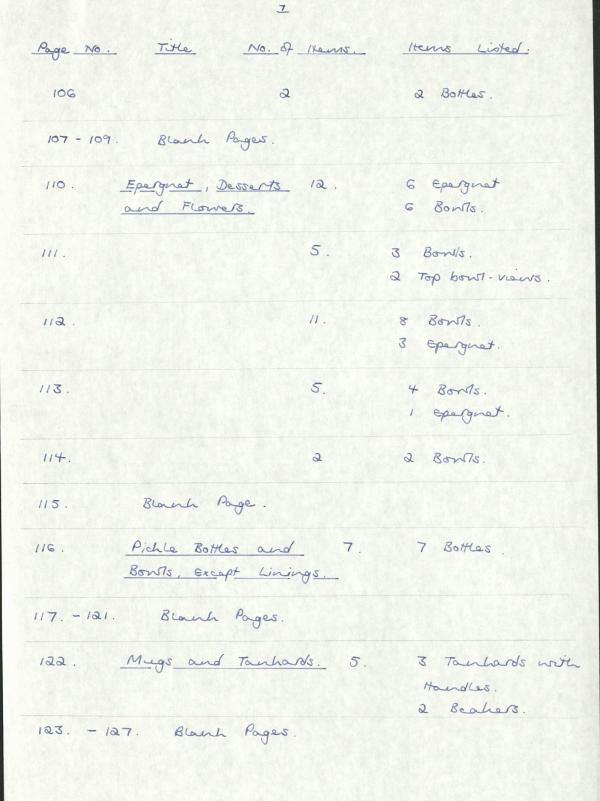 7
Page No. Title No. of Items. Items Listed.
106 2 2 Bottles.
107 - 109. Blank Pages.
110. Epergnat, Desserts 12. 6 Epergnat
and Flowers. 6 Bowls.
111. 5. 3 Bowls.
2 Top bowl-views.
112. 11. 8 Bowls.
3 Epergnat.
113. 5. 4 Bowls.
1 Epergnat.
114. 2 2 Bowls.
115. Blank Page.
116. Pickle Bottles and 7. 7 Bottles.
Bowls, Except Linings.
117. - 121. Blank Pages.
122. Mugs and Tankards. 5. 3 Tankards with
Handles.
2 Beakers.
123. - 127. Blank Pages.